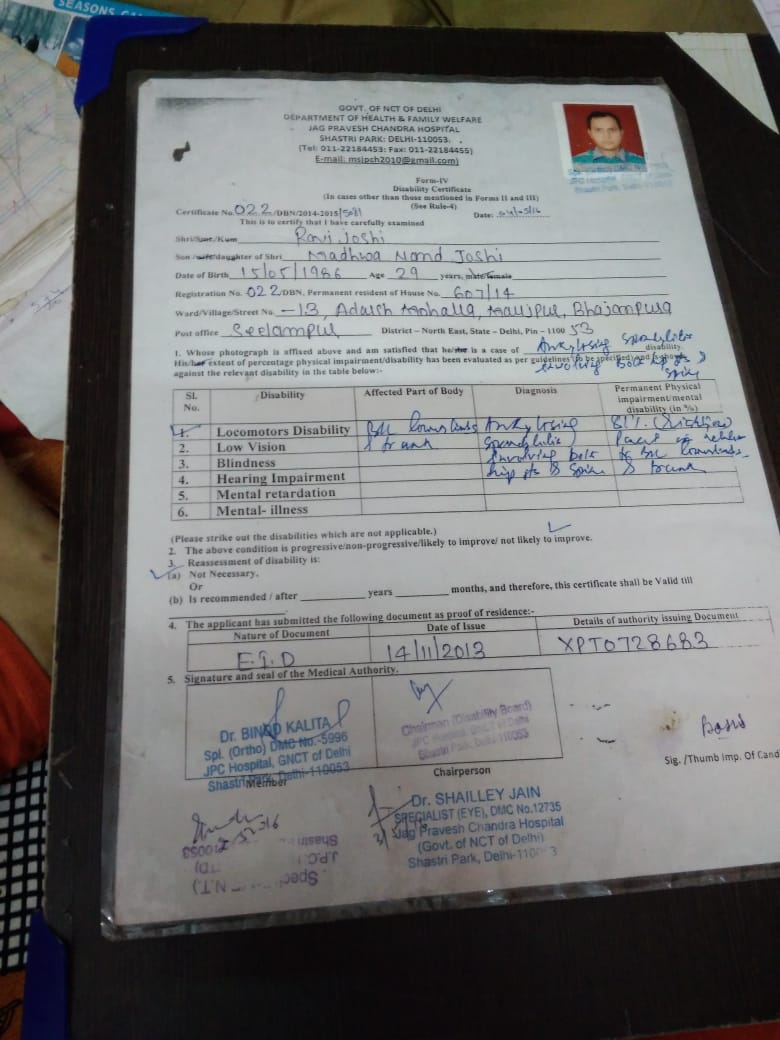 SEASONS
GOVT. OF NCT OF DELHI
DEPARTMENT OF HEALTH & FAMILY WELFARE
JAG PRAVESH CHANDRA HOSPITAL
SHASTRI PARK: DELHI-110053.
(Tel: 011-22184453: Fax: 011-22184455)
E-mail: msjpch2010@gmail.com)
Form-IV
Disability Certificate
(In cases other than those mentioned in Forms II and III)
(See Rule-4)
Certificate No. 022/DBN/2014-2015/5081 Date:
This is to certify that I have carefully examined
Shri/Smt./Kum Ravi Joshi
Son/wife/daughter of Shri Madhwa Nand Joshi
Date of Birth 15/05/1986 Age 29 years, male/female
Registration No. 022/DBN, Permanent resident of House No. 607/14
Ward/Village/Street No. -13, Adarsh Mohalla, Maujpur, Bhajanpura
Post office Seelampur District - North East, State - Delhi, Pin - 1100 53
1. Whose photograph is affixed above and am satisfied that he/she is a case of Ankylosing Spondylitis disability.
involving
His/her extent of percentage physical impairment/disability has been evaluated as per guidelines (to be specified) and is shown
against the relevant disability in the table below:-
Sl. No. Disability Affected Part of Body Diagnosis Permanent Physical impairment/mental disability (in %)
1. Locomotors Disability Ankylosing 81%
2. Low Vision & trunk Spondylitis
3. Blindness involving
4. Hearing Impairment hip & Spine & trunk
5. Mental retardation
6. Mental- illness
(Please strike out the disabilities which are not applicable.)
2. The above condition is progressive/non-progressive/likely to improve/ not likely to improve.
3. Reassessment of disability is:
(a) Not Necessary.
Or
(b) Is recommended / after years months, and therefore, this certificate shall be Valid till
4. The applicant has submitted the following document as proof of residence:-
Nature of Document Date of Issue Details of authority issuing Document
E.I.D 14/11/2013 XPT0728683
5. Signature and seal of the Medical Authority.
Dr. BINOD KALITA
Spl. (Ortho) DMC No.-5996
JPC Hospital, GNCT of Delhi
Shastri Park, Delhi-110053
Chairman (Disability Board)
JPC Hospital, GNCT of Delhi
Shastri Park, Delhi-110053
Sig. /Thumb Imp. Of Cand
Member
Chairperson
Dr. SHAILLEY JAIN
SPECIALIST (EYE), DMC No.12735
Jag Pravesh Chandra Hospital
(Govt. of NCT of Delhi)
Shastri Park, Delhi-110053
Shastri
J.P.C.